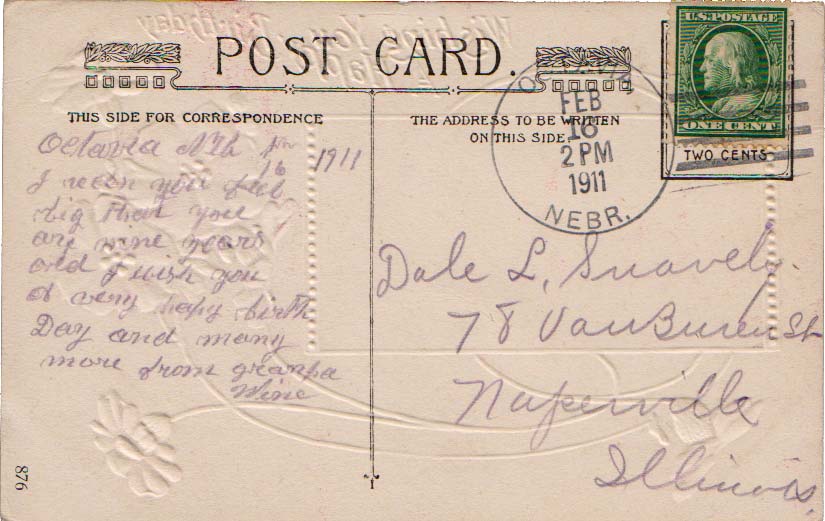 POST CARD.
THIS SIDE FOR CORRESPONDENCE
Octavia Neb
16 1911
I recon you feel
big that you
are nine years
old I wish you
a very hapy birth
Day and many
more from granpa
Wine
THE ADDRESS TO BE WRITTEN
ON THIS SIDE.
FEB
16
2 PM
1911
NEBR.
U.S. POSTAGE
ONE CENT
TWO CENTS
Dale L. Snavely.
78 Van Buren St
Naperville
Illinois.
876
1